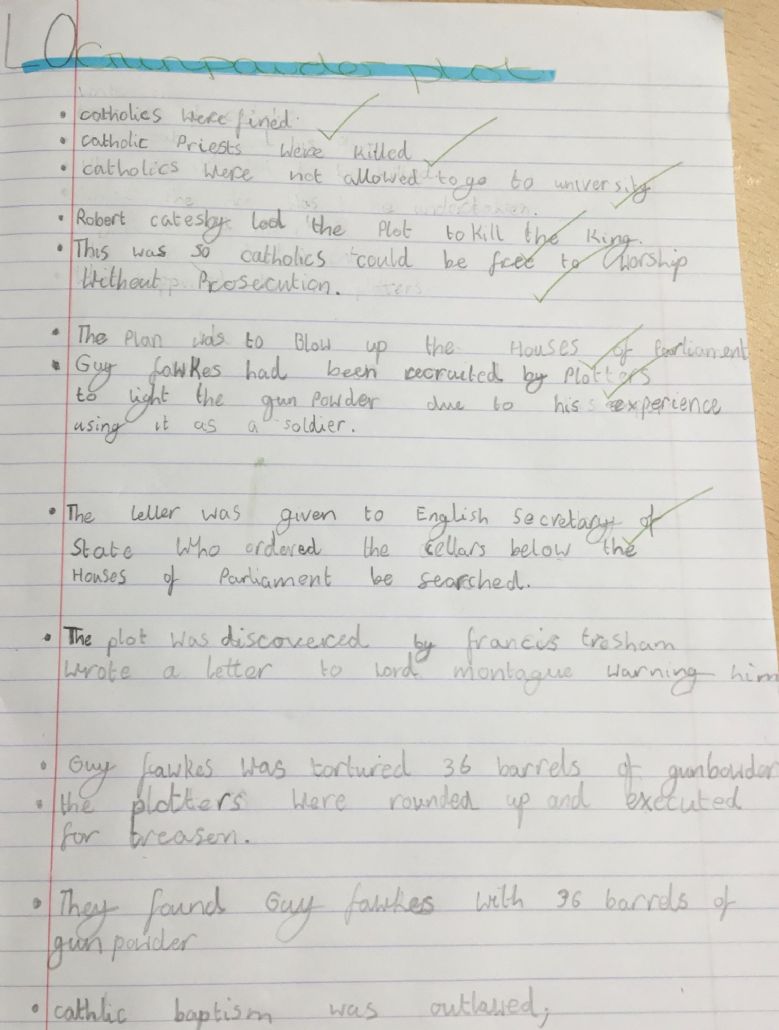 LO Gunpowder plot.
• catholics were fined.
• catholic Priests were killed
• catholics were not allowed to go to university
• Robert catesby led the Plot to kill the King.
• This was so catholics could be free to worship
without Prosecution.
• The Plan was to Blow up the Houses of Parliament
• Guy fawkes had been recruited by Plotters
to light the gun powder due to his experience
using it as a soldier.
• The letter was given to English Secretary of
State who ordered the cellars below the
Houses of Parliament be searched.
• The plot was discovered by francis tresham
wrote a letter to Lord montague warning him
• Guy fawkes was tortured 36 barrels of gunbowder
• the plotters were rounded up and executed
for treason.
• They found Guy fawkes with 36 barrels of
gun powder
• cathlic baptism was outlawed;